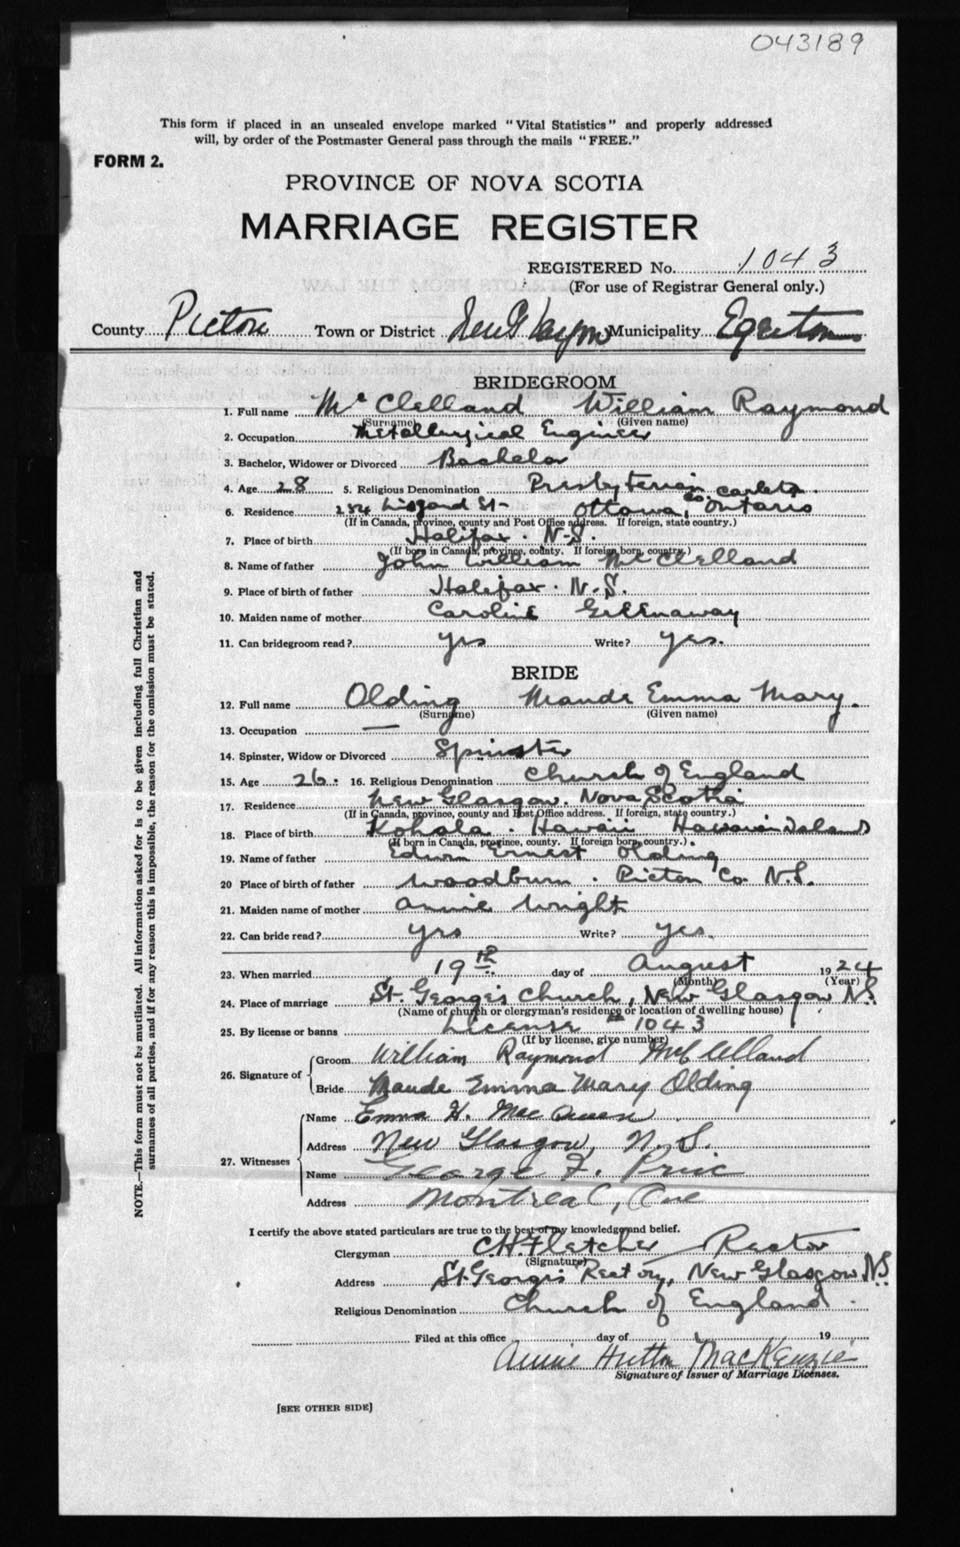 043189
This form if placed in an unsealed envelope marked "Vital Statistics" and properly addressed
will, by order of the Postmaster General pass through the mails "FREE."
FORM 2.
PROVINCE OF NOVA SCOTIA
MARRIAGE REGISTER
REGISTERED No. 1043
(For use of Registrar General only.)
County Pictou Town or District New Glasgow Municipality Egerton
BRIDEGROOM
1. Full name McClelland William Raymond
(Surname) (Given name)
2. Occupation Metallurgical Engineer
3. Bachelor, Widower or Divorced Bachelor
4. Age 28 5. Religious Denomination Presbyterian
6. Residence 284 Lisgard St- Ottawa, Co. Carleton Ontario
(If in Canada, province, county and Post Office address. If foreign, state country.)
7. Place of birth Halifax. N.S.
(If born in Canada, province, county. If foreign born, country.)
8. Name of father John William McClelland
9. Place of birth of father Halifax. N.S.
10. Maiden name of mother Caroline Greenaway
11. Can bridegroom read? yes Write? yes.
BRIDE
12. Full name Olding Maude Emma Mary.
(Surname) (Given name)
13. Occupation —
14. Spinster, Widow or Divorced Spinster
15. Age 26. 16. Religious Denomination Church of England
17. Residence New Glasgow. Nova Scotia
(If in Canada, province, county and Post Office address. If foreign, state country.)
18. Place of birth Kohala. Hawaii Hawaiian Islands
(If born in Canada, province, county. If foreign born, country.)
19. Name of father Edwin Ernest Olding
20 Place of birth of father Woodburn. Pictou Co. N.S.
21. Maiden name of mother Annie Wright
22. Can bride read? yes Write? yes.
23. When married 19th day of August 1924
(Month) (Year)
24. Place of marriage St. George's Church, New Glasgow N.S.
(Name of church or clergyman's residence or location of dwelling house)
25. By license or banns License # 1043
(If by license, give number)
26. Signature of
Groom William Raymond McClelland
Bride Maude Emma Mary Olding
27. Witnesses
Name Emma H. Mac
Address New Glasgow, N.S.
Name George F.
Address Montreal, Que
I certify the above stated particulars are true to the best of my knowledge and belief.
Clergyman C.H. Fletcher Rector
(Signature)
Address St. George's Rectory, New Glasgow N.S.
Religious Denomination Church of England.
Filed at this office day of 19
Annie Hutton MacKenzie
Signature of Issuer of Marriage Licenses.
[SEE OTHER SIDE]
NOTE.—This form must not be mutilated. All information asked for is to be given including full Christian and
surnames of all parties, and if for any reason this is impossible, the reason for the omission must be stated.